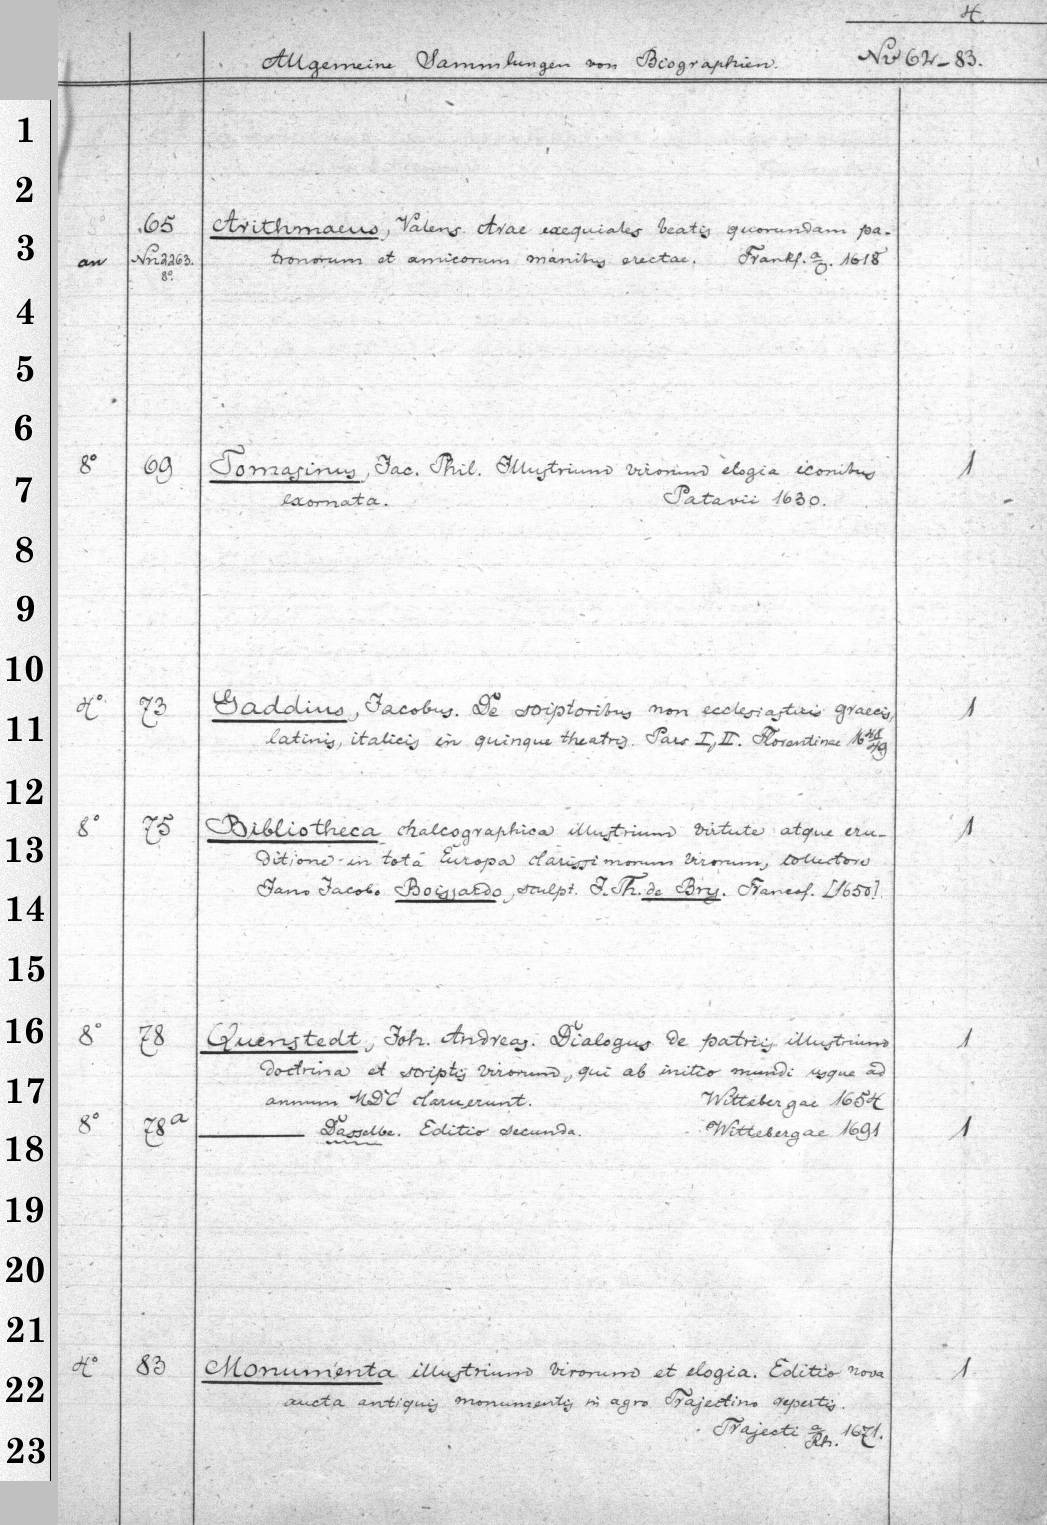 4
Allgemeine Sammlungen von Biographien. No 62-83.
1
2
8° .65 Arithmaeus, Valens. Arae exequiales beatis quorundam pa-
3
an No 2263. tronorum et amicorum manibus erectae. Frankf. a/O. 1618
8°.
4
5
6
8° 69 Tomasinus, Jac. Phil. Illustrium virorum elogia iconibus 1
7
exornata. Patavii 1630.
8
9
10
4° 73 Gaddius, Jacobus. De scriptoribus non ecclesiasticis graecis, 1
11
latinis, italicis in quinque theatris. Pars I, II. Florentinae 1648/49
12
8° 75 Bibliotheca chalcographica illustrium virtute atque eru- 1
13
ditione in totâ Europa clarissimorum virorum, collectore
Jano Jacobo Boissardo, sculpt. J. Th. de Bry. Francof. [1650].
14
15
16
8° 78 Quenstedt, Joh. Andreas. Dialogus de patriis illustrium 1
doctrina et scriptis virorum, qui ab initio mundi usque ad
17
annum MDC claruerunt. Wittebergae 1654
8° 78a Dasselbe. Editio secunda. Wittebergae 1691 1
18
19
20
21
4° 83 Monumenta illustrium virorum et elogia. Editio nova 1
22
aucta antiquis monumentis in agro Trajectino repertis.
Trajecti a/Rh. 1671.
23